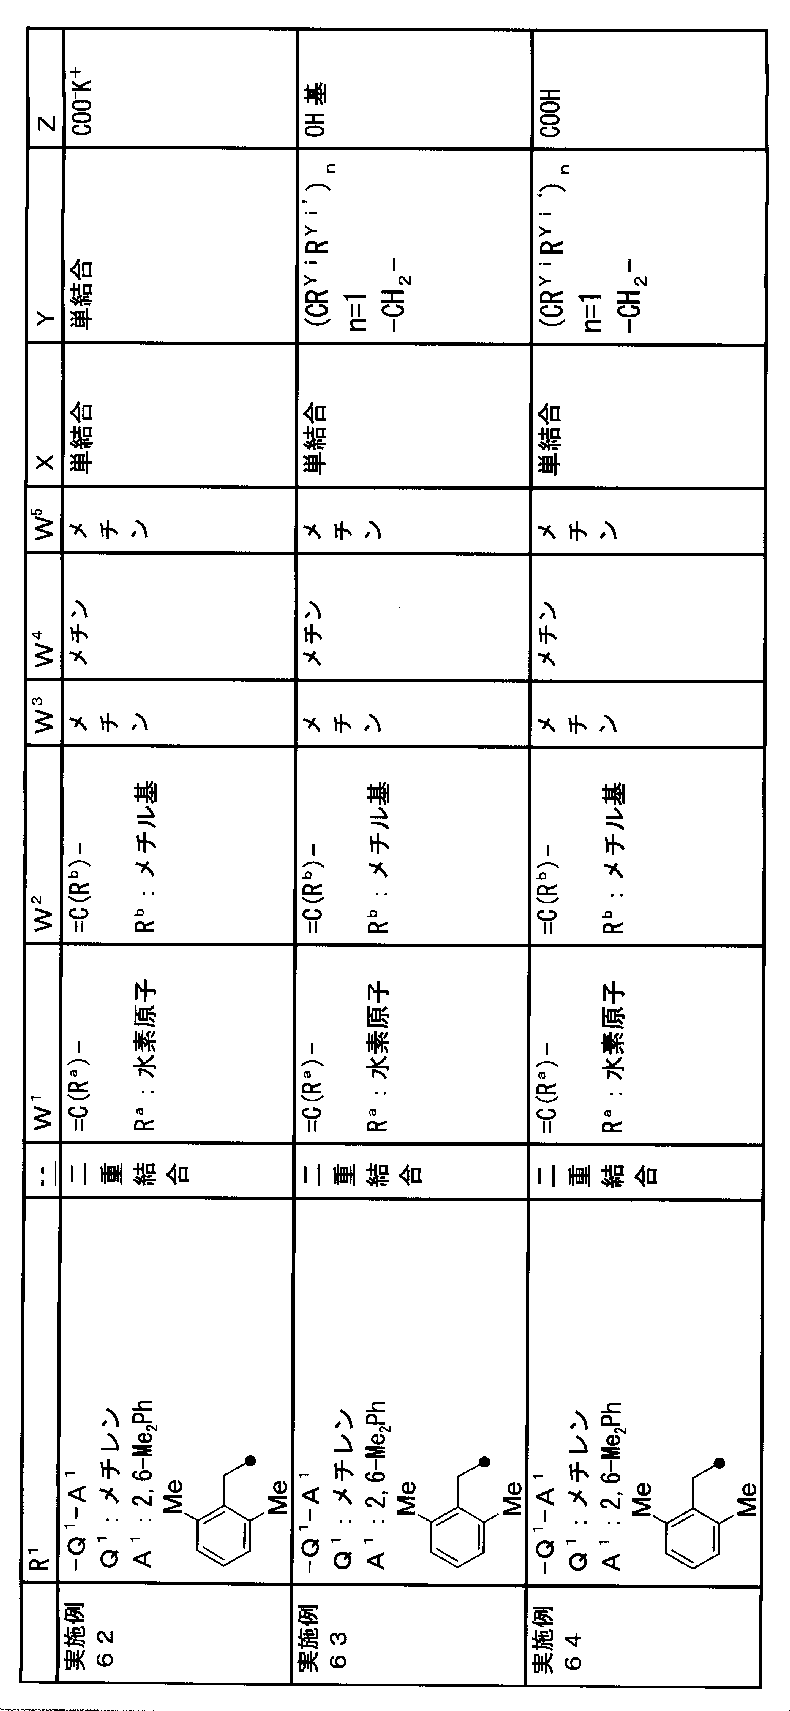 R¹
---
W¹
W²
W³
W⁴
W⁵
X
Y
Z
実施例
62
-Q¹-A¹
Q¹：メチレン
A¹：2,6-Me₂Ph
Me
Me
二
重
結
合
=C(Rᵃ)-
Rᵃ：水素原子
=C(Rᵇ)-
Rᵇ：メチル基
メ
チ
ン
メチン
メ
チ
ン
単結合
単結合
COO⁻K⁺
実施例
63
-Q¹-A¹
Q¹：メチレン
A¹：2,6-Me₂Ph
Me
Me
二
重
結
合
=C(Rᵃ)-
Rᵃ：水素原子
=C(Rᵇ)-
Rᵇ：メチル基
メ
チ
ン
メチン
メ
チ
ン
単結合
(CRʸⁱRʸⁱ')ₙ
n=1
-CH₂-
OH基
実施例
64
-Q¹-A¹
Q¹：メチレン
A¹：2,6-Me₂Ph
Me
Me
二
重
結
合
=C(Rᵃ)-
Rᵃ：水素原子
=C(Rᵇ)-
Rᵇ：メチル基
メ
チ
ン
メチン
メ
チ
ン
単結合
(CRʸⁱRʸⁱ')ₙ
n=1
-CH₂-
COOH